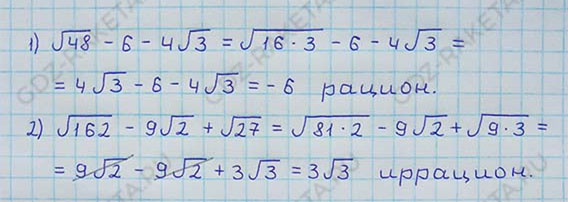 1) √48 - 6 - 4√3 = √16·3 - 6 - 4√3 =
= 4√3 - 6 - 4√3 = - 6 рацион.
2) √162 - 9√2 + √27 = √81·2 - 9√2 + √9·3 =
= 9√2 - 9√2 + 3√3 = 3√3 иррацион.